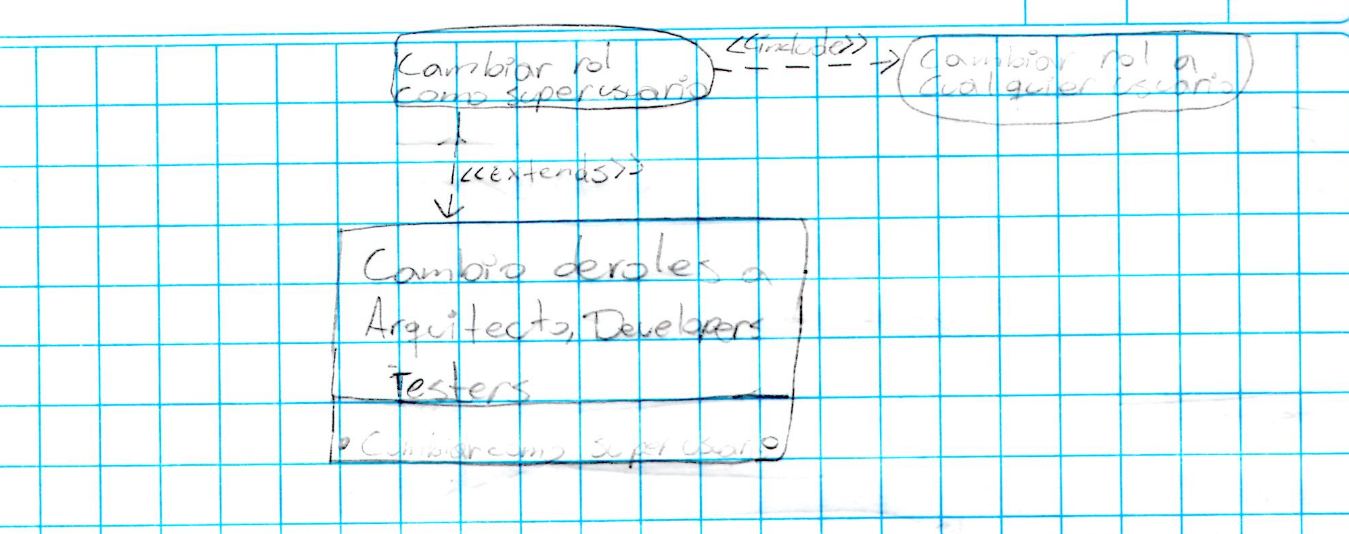 Cambiar rol
como superusuario
<<include>>
Cambiar rol a
cualquier usuario
<<extends>>
Cambio de roles a
Arquitecto, Developers
Testers
• Cambiar como super usuario